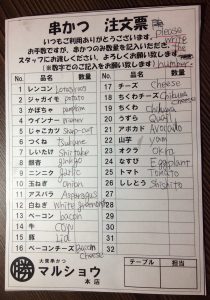 串かつ 注文票
いつもご利用ありがとうございます。
お手数ですが、串かつのみ数量をご記入いただき、
スタッフにお渡しください。よろしくお願い致します
※(数字でのご記入をお願い致します)
please
write
the
number.
No. 品名 数量
1 レンコン Lotus root
2 ジャガイモ potato
3 かぼちゃ pumpkin
4 ウインナー Wiener
5 じゃこカツ
6 つくね Tsukune
7 しいたけ Shiitake
8 銀杏 ginkgo
9 にんにく garlic
10 玉ねぎ onion
11 アスパラ Asparagus
12 白ねぎ White green onion
13 ベーコン bacon
14 牛 cow
15 豚
16 ベーコンチーズ Bacon cheese
No. 品名 数量
17 チーズ Cheese
18 ちくわチーズ Chikuwa cheese
19 ちくわ chikuwa
20 うずら Quail
21 アボカド Avocado
22 山芋 yam
23 オクラ Okra
24 なすび Eggplant
25 トマト Tomato
26 ししとう Shishito
27
28
29
30
31
32
大衆串かつ
マルショウ
本店
勝
テーブル 担当